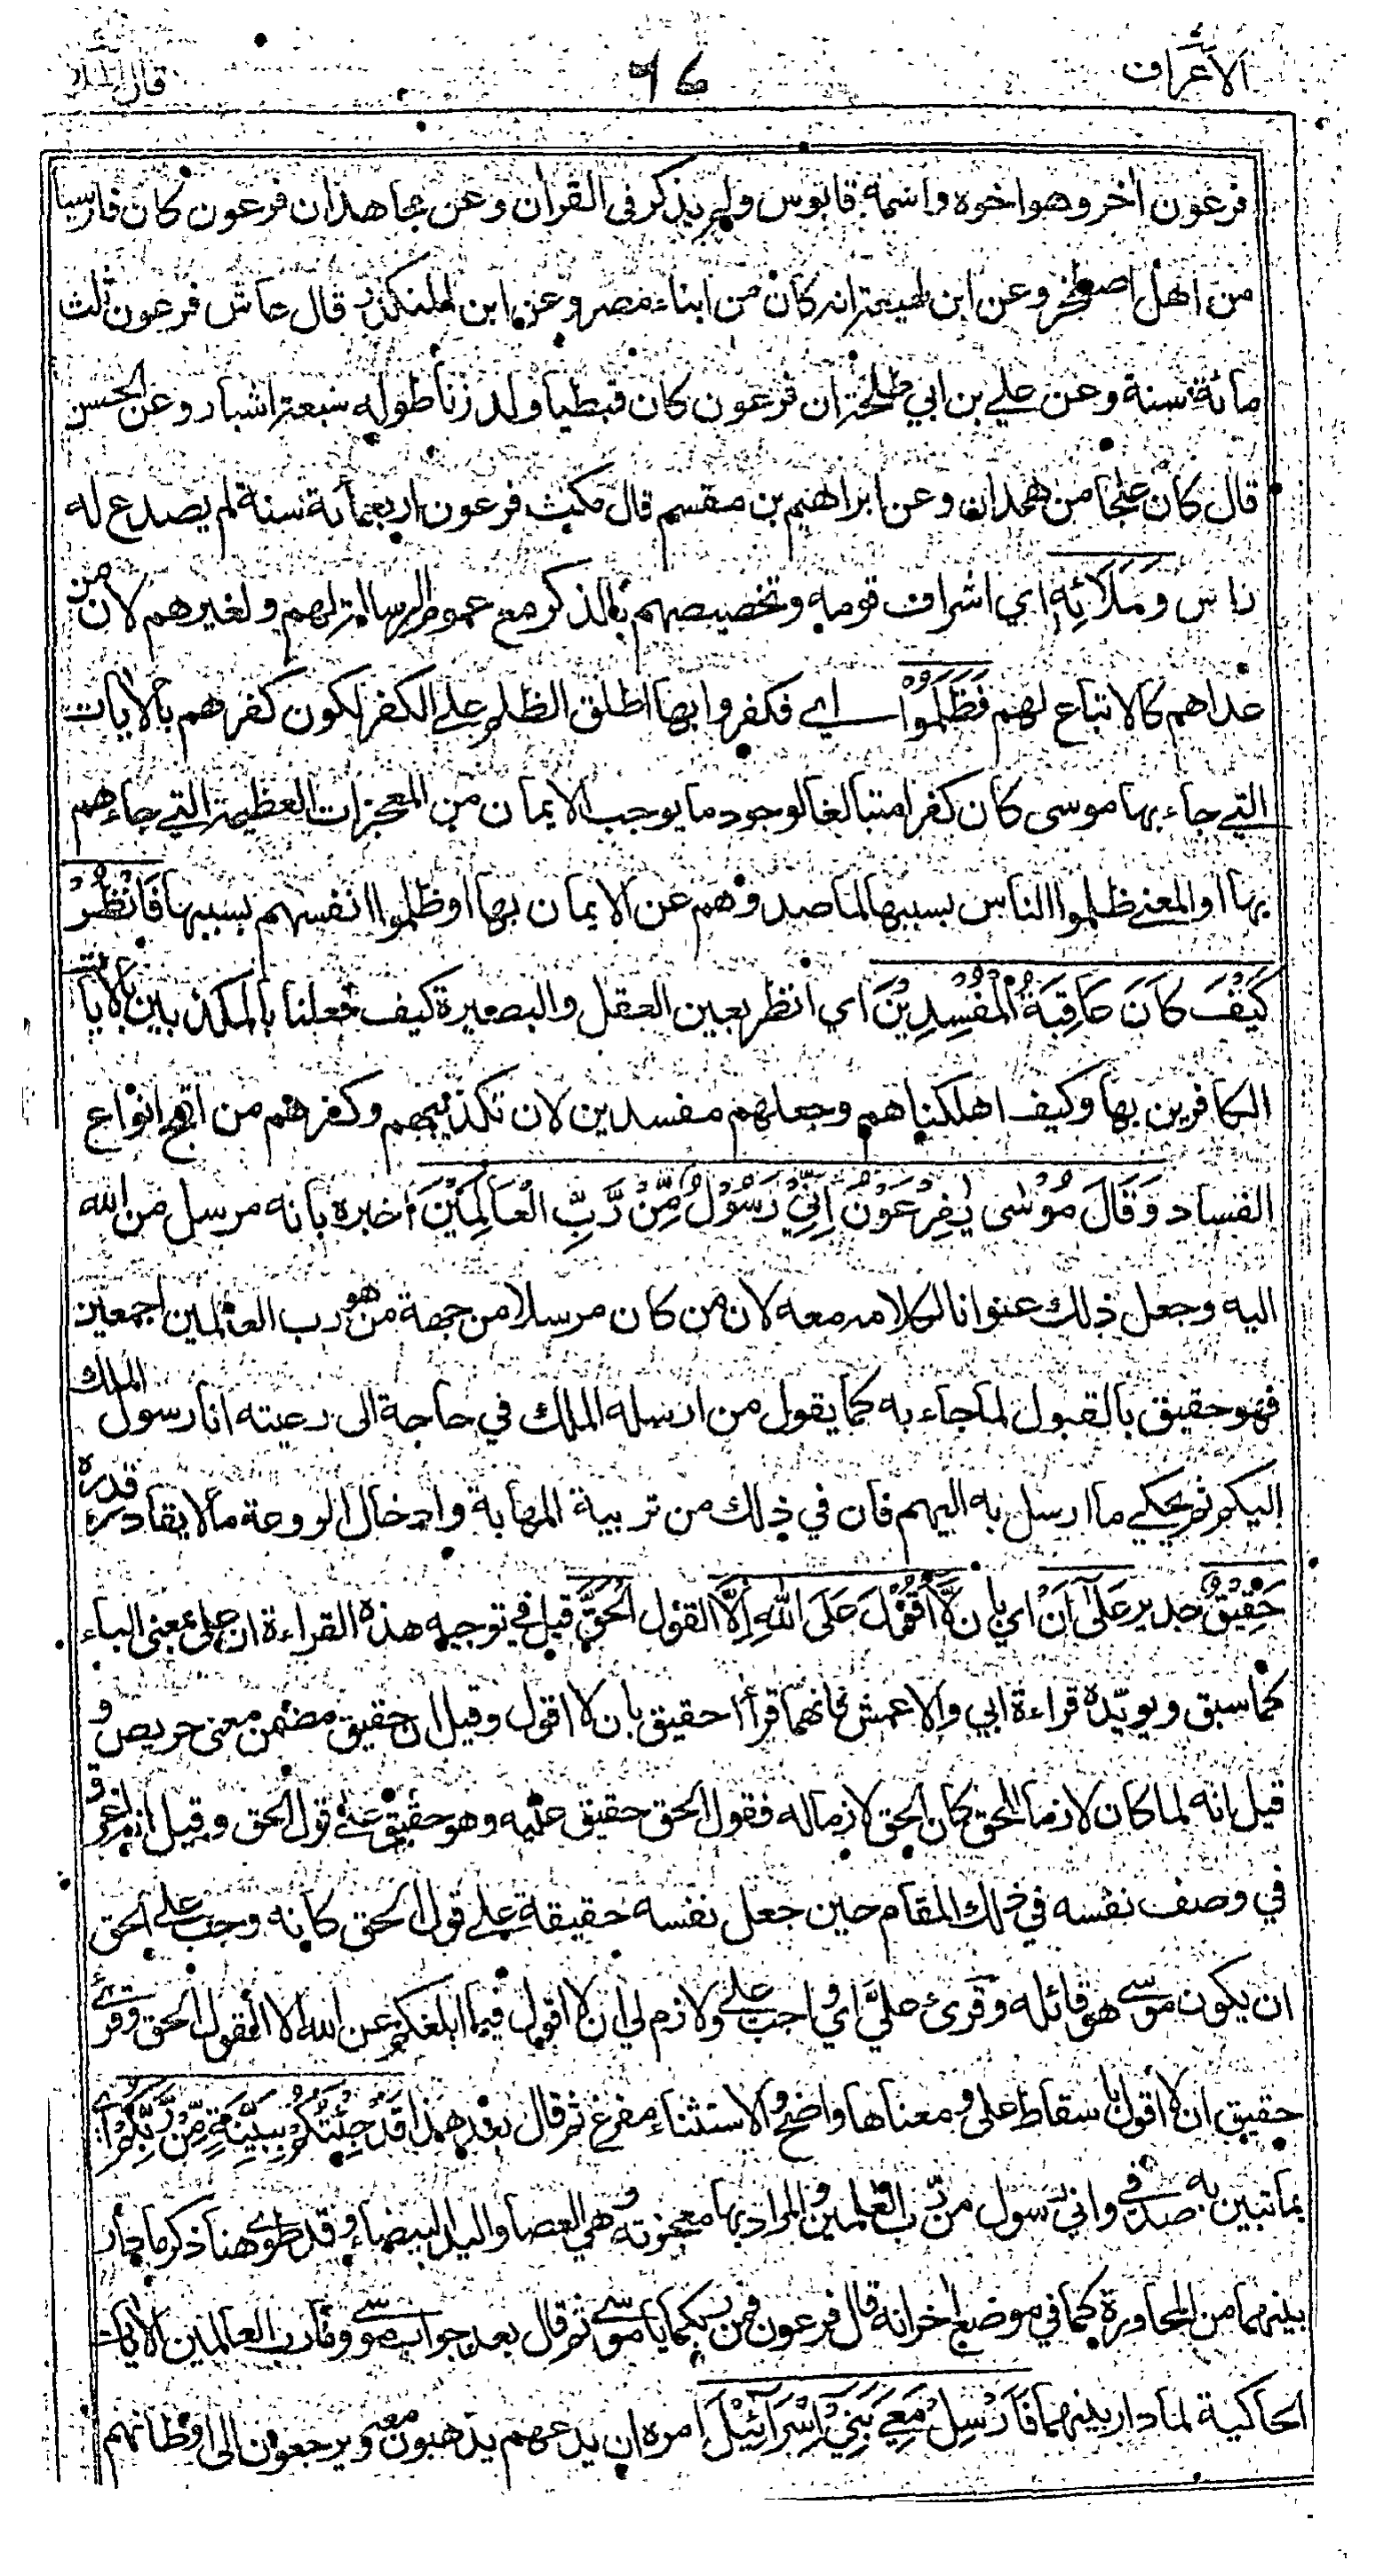 الاعراف ٦٦ قال الملا
فرعون اٰخر وهو اخوه واسمه قابوس ولم يذكر فى القراٰن وعن مجاهد ان فرعون كان فارسيا
من اهل اصطخر وعن ابن لهيعة انه كان من ابناء مصر وعن ابن المنكدر قال عاش فرعون ثلث
مائة سنة وعن علي بن ابي طلحة ان فرعون كان قبطيا ولد زنا طوله سبعة اشبار وعن الحسن
قال كان علجا من همدان وعن ابراهيم بن مقسم قال مكث فرعون اربعمائة سنة لم يصدع له
راس وَمَلَائِهِ اي اشراف قومه وتخصيصهم بالذكر مع عموم الرسالة لهم ولغيرهم لان من
عداهم كالاتباع لهم فَظَلَمُوْا اي فكفروا بها اطلق الظلم علي الكفر لكون كفرهم بالاٰيات
التي جاء بها موسى كان كفرا متبالغا لوجود ما يوجب الايمان من المعجزات العظيمة التي جاءهم
بها او المعنى ظلموا الناس بسببها لما صدوهم عن الايمان بها او ظلموا انفسهم بسببها فَانْظُرْ
كَيْفَ كَانَ عَاقِبَةُ الْمُفْسِدِيْنَ اي انظر بعين العقل والبصيرة كيف فعلنا بالمكذبين بالاٰيات
الكافرين بها وكيف اهلكناهم وجعلهم مفسدين لان تكذيبهم وكفرهم من اقبح انواع
الفساد وَقَالَ مُوْسٰى يٰفِرْعَوْنُ اِنِّيْ رَسُوْلٌ مِّنْ رَّبِّ الْعَالَمِيْنَ اخبره بانه مرسل من الله
اليه وجعل ذلك عنوانا لكلامه معه لان من كان مرسلا من جهة من هو رب العالمين اجمعين
فهو حقيق بالقبول لما جاء به كما يقول من ارسله الملك في حاجة الى رعيته انا رسول الملك
اليكم ثم يحكي ما ارسل به اليهم فان في ذلك من تربية المهابة وادخال الروعة ما لا يقادر قدره
حَقِيْقٌ جدير عَلٰى اَنْ اي بان لَّا اَقُوْلَ عَلَى اللّٰهِ اِلَّا القول الْحَقَّ قيل في توجيه هذه القراءة ان على بمعنى الباء
كما سبق ويويّده قراءة ابي والاعمش فانهما قرأا حقيق بان لا اقول وقيل ان حقيق مضمن معنى حريص و
قيل انه لما كان لازما للحق كان الحق لازما له فقول الحق حقيق عليه وهو حقيق على قول الحق وقيل انه اغرق
في وصف نفسه في ذلك المقام حين جعل نفسه حقيقة علي قول الحق كانه وجب علي الحق
ان يكون موسى هو قائله وقرىء عليَّ اي واجب علي ولازم لي ان لا اقول فيما ابلغكم عن الله الا القول الحق وقرئ
حقيق ان لا اقول باسقاط على ومعناها واضح والاستثناء مفرغ ثم قال بعد هذا قَدْ جِئْتُكُمْ بِبَيِّنَةٍ مِّنْ رَّبِّكُمْ اي
بما تبين به صدقي واني رسول من رب العٰلمين والمراد بها معجزته وهي العصا واليد البيضاء وقد طوى هنا ذكر ما دار
بينهما من المحاورة كما في موضع اٰخر انه قال فرعون فمن ربكما يا موسى ثم قال بعد جواب موسى وما رب العالمين الاٰيات
الحاكية لما دار بينهما فَاَرْسِلْ مَعِيَ بَنِيْ اِسْرَآئِيْلَ امره ان يدعهم يذهبون معه ويرجعون الى اوطانهم